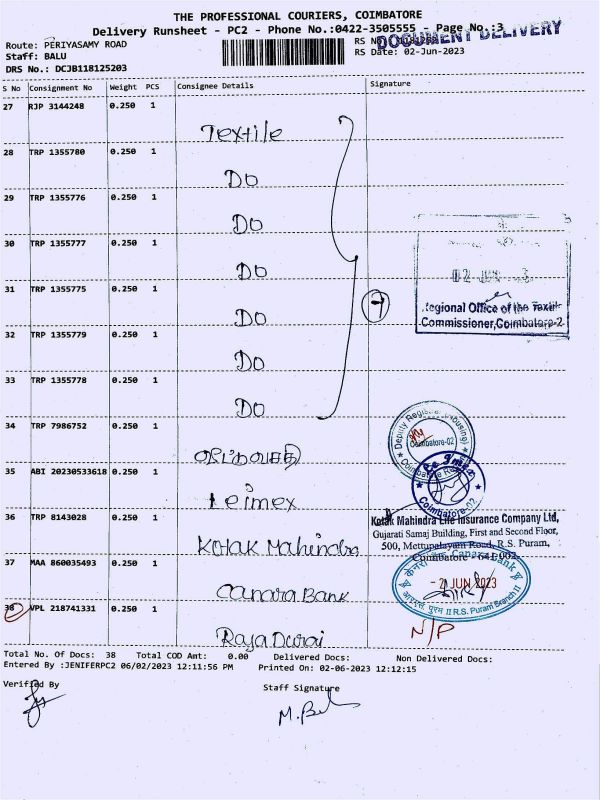 THE PROFESSIONAL COURIERS, COIMBATORE
Delivery Runsheet - PC2 - Phone No.:0422-3505555 - Page No.:3
DOCUMENT DELIVERY
Route: PERIYASAMY ROAD
RS No
Staff: BALU
RS Date: 02-Jun-2023
DRS No.: DCJB118125203
S No Consignment No Weight PCS Consignee Details Signature
27 RJP 3144248 0.250 1
Textile
28 TRP 1355780 0.250 1
DO
29 TRP 1355776 0.250 1
DO
30 TRP 1355777 0.250 1
DO
02 JUN
Regional Office of the Textile
Commissioner, Coimbatore-2
31 TRP 1355775 0.250 1
7
DO
32 TRP 1355779 0.250 1
DO
33 TRP 1355778 0.250 1
DO
34 TRP 7986752 0.250 1
Deputy Registrar (Housing)
Coimbatore-02
வீட்டுவசதி
35 ABI 20230533618 0.250 1
Coimbatore-02
Leimex
36 TRP 8143028 0.250 1
Kotak Mahindra Life Insurance Company Ltd,
Gujarati Samaj Building, First and Second Floor,
500, Mettupalayam Road, R.S. Puram,
Coimbatore - 641 002
Kotak Mahindra
37 MAA 860035493 0.250 1
केनरा बैंक Canara Bank
- 2 JUN 2023
आर.एस. पुरम II R.S. Puram Branch II
Canara Bank
38 VPL 218741331 0.250 1
N/P
Raja Durai
Total No. Of Docs: 38 Total COD Amt: 0.00 Delivered Docs: Non Delivered Docs:
Entered By :JENIFERPC2 06/02/2023 12:11:56 PM Printed On: 02-06-2023 12:12:15
Verified By
Staff Signature